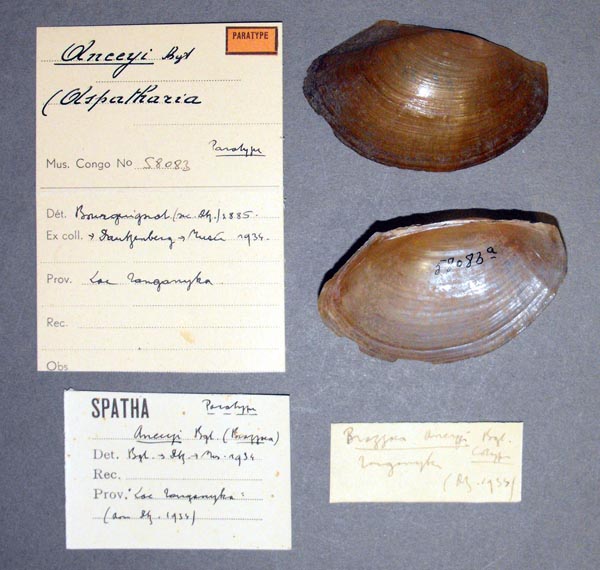 PARATYPE
Anceyi Bgt
(Aspatharia
Paratype
Mus. Congo No 58083
Dét. Bourguignat 1885.
Ex coll. → Dautzenberg → 1934.
Prov. Lac Tanganyka
Rec.
Obs
58083a
SPATHA Paratype
Anceyi Bgt. (Brazzaea)
Det. Bgt. → Dtz. → Mus. 1934
Rec.
Prov. Lac Tanganyka
(don Dtz. 1933)
Brazzaea Anceyi Bgt.
Cotype
Tanganyka
(Dtz. 1933)